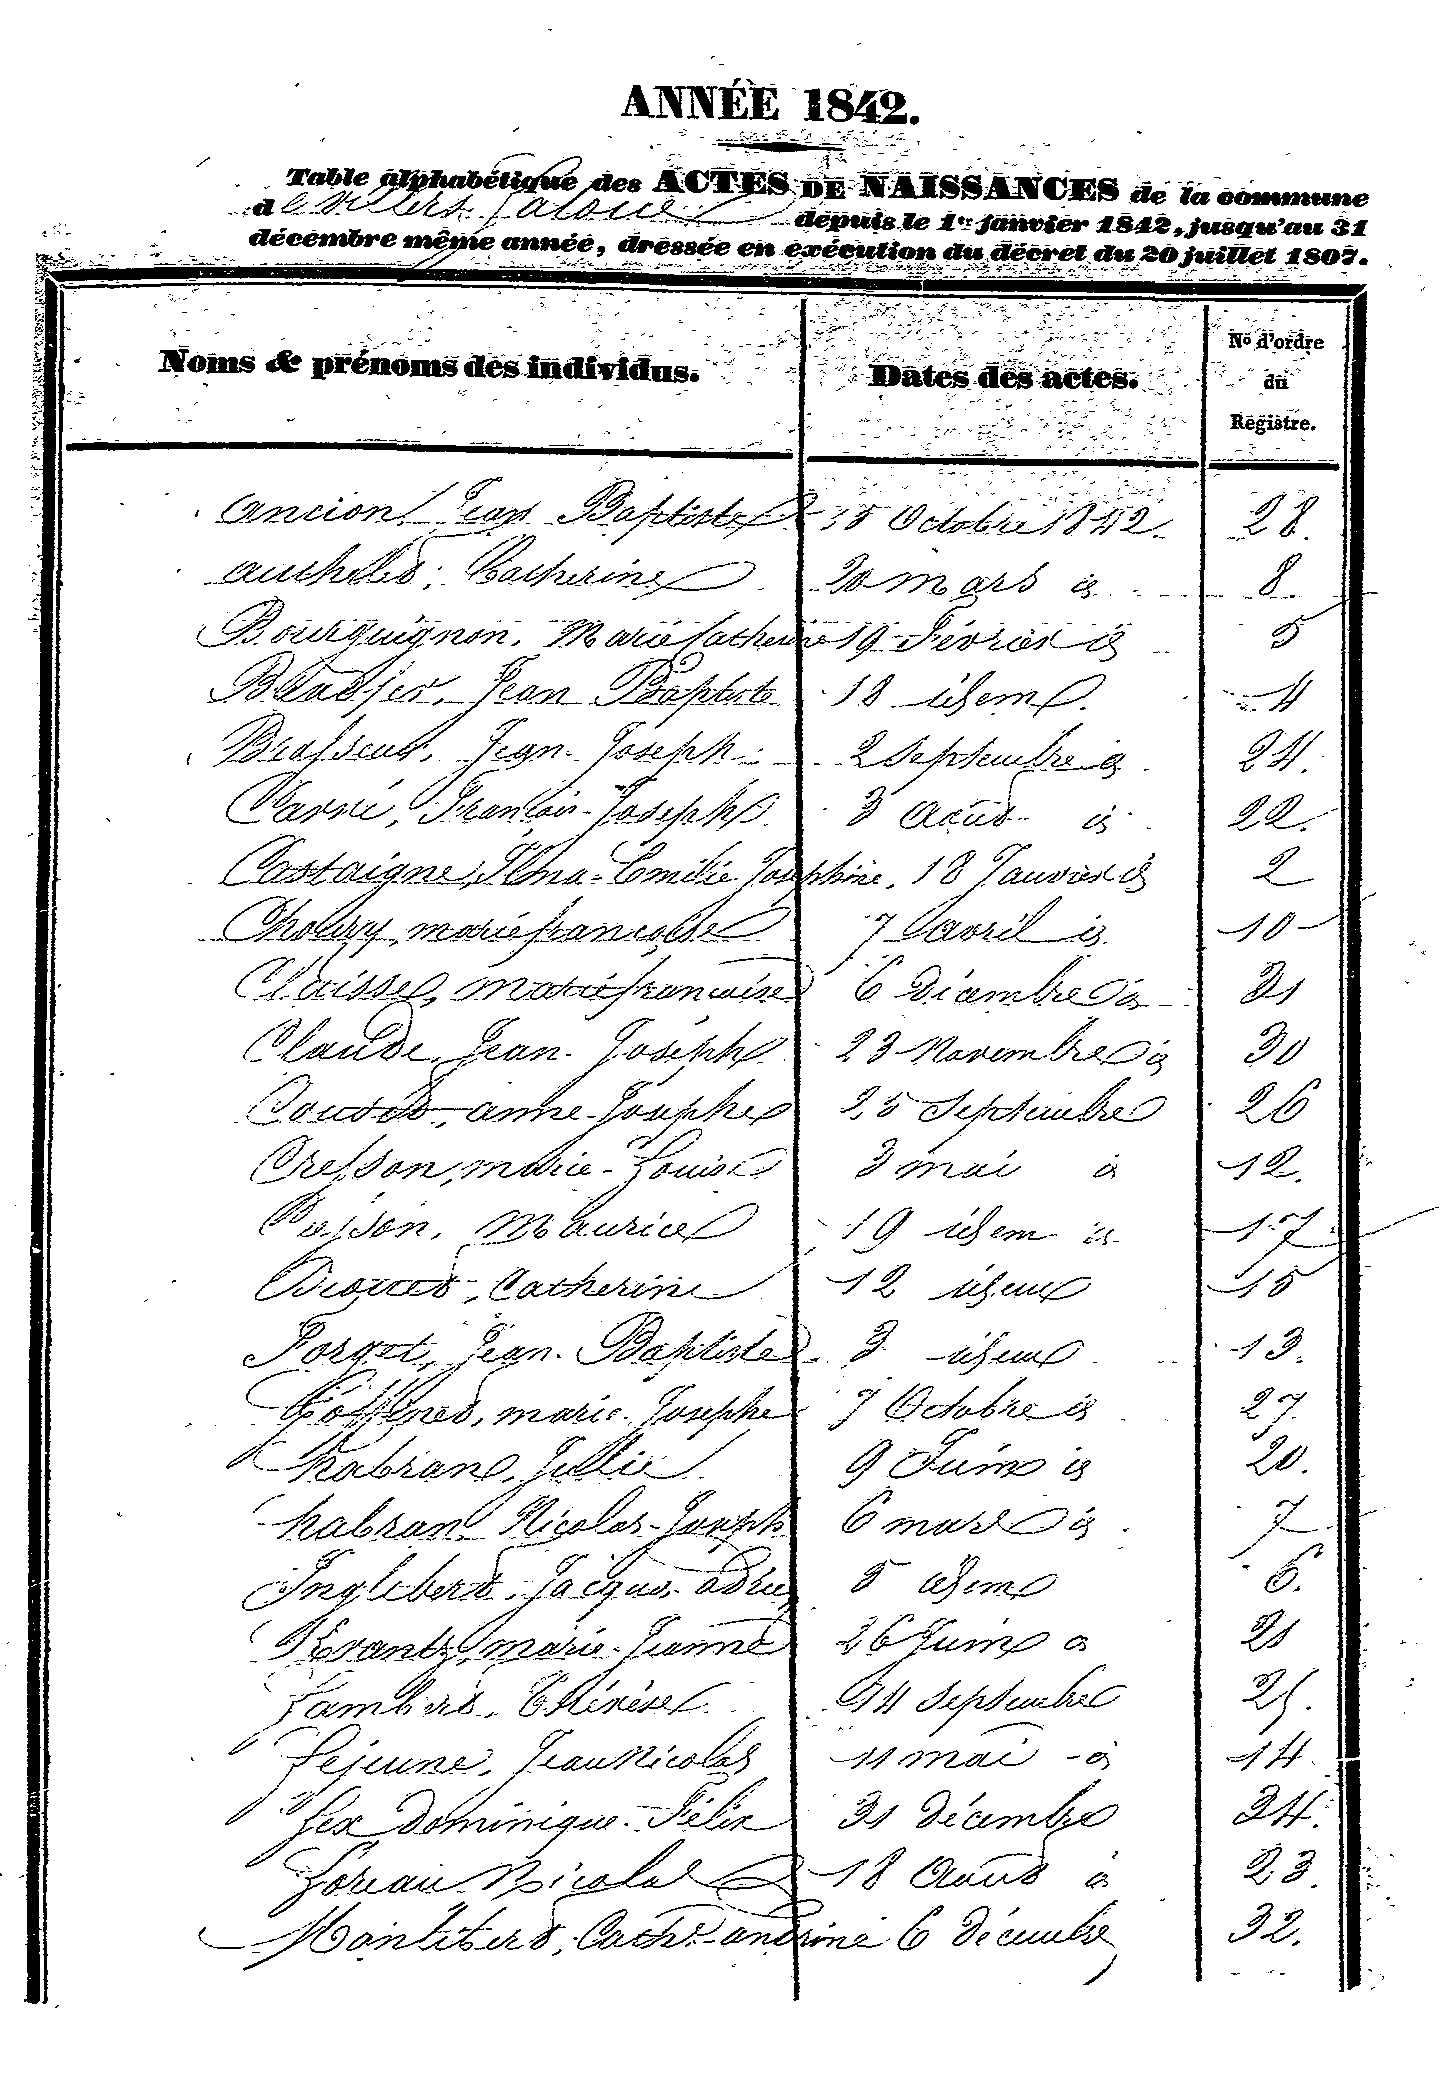 ANNÉE 1842.
Table alphabétique des ACTES DE NAISSANCES de la commune
de Villers Laloue depuis le 1er janvier 1842, jusqu'au 31
décembre même année, dressée en exécution du décret du 20 juillet 1807.
Noms & prénoms des individus. Dates des actes. No d'ordre du Registre.
ancion, Jean Baptiste 15 Octobre 1842. 28.
Catherine 20 mars id 8.
Bourguignon, Marie Catherine 19 Février id 5
Jean Baptiste 18 idem. 4
Brasseur, Jean-Joseph 2 Septembre id 24.
Carré, François-Joseph. 3 Août id 22.
Castaigne, Elma-Emilie-Josephine, 18 Janvier id 2
Choury, marie francoise 7 avril id 10
Claisse, marie francoise 6 décembre id 31
Claude, Jean-Joseph 23 Novembre id 30
anne-Josephe 25 Septembre 26
Cresson, marie-Louise 3 mai id 12.
Maurice 19 idem id 17
Catherine 12 idem 15
Forget, Jean-Baptiste 3 idem 13.
marie-Josephe 7 Octobre id 27.
habran, Jullie 9 Juin id 20.
habran Nicolas-Joseph 6 mars id 7
Inglebert, Jacques-adrien 5 idem 6.
Krantz, marie-Jeanne 26 Juin id 21
Lambert, Thérèse 14 Septembre 25.
Lejeune, Jean Nicolas 11 mai id 14
Lex Dominique-Félix 31 décembre 34.
Loreau Nicolas 18 Août id 23.
Cathe-andrine 6 décembre 32.